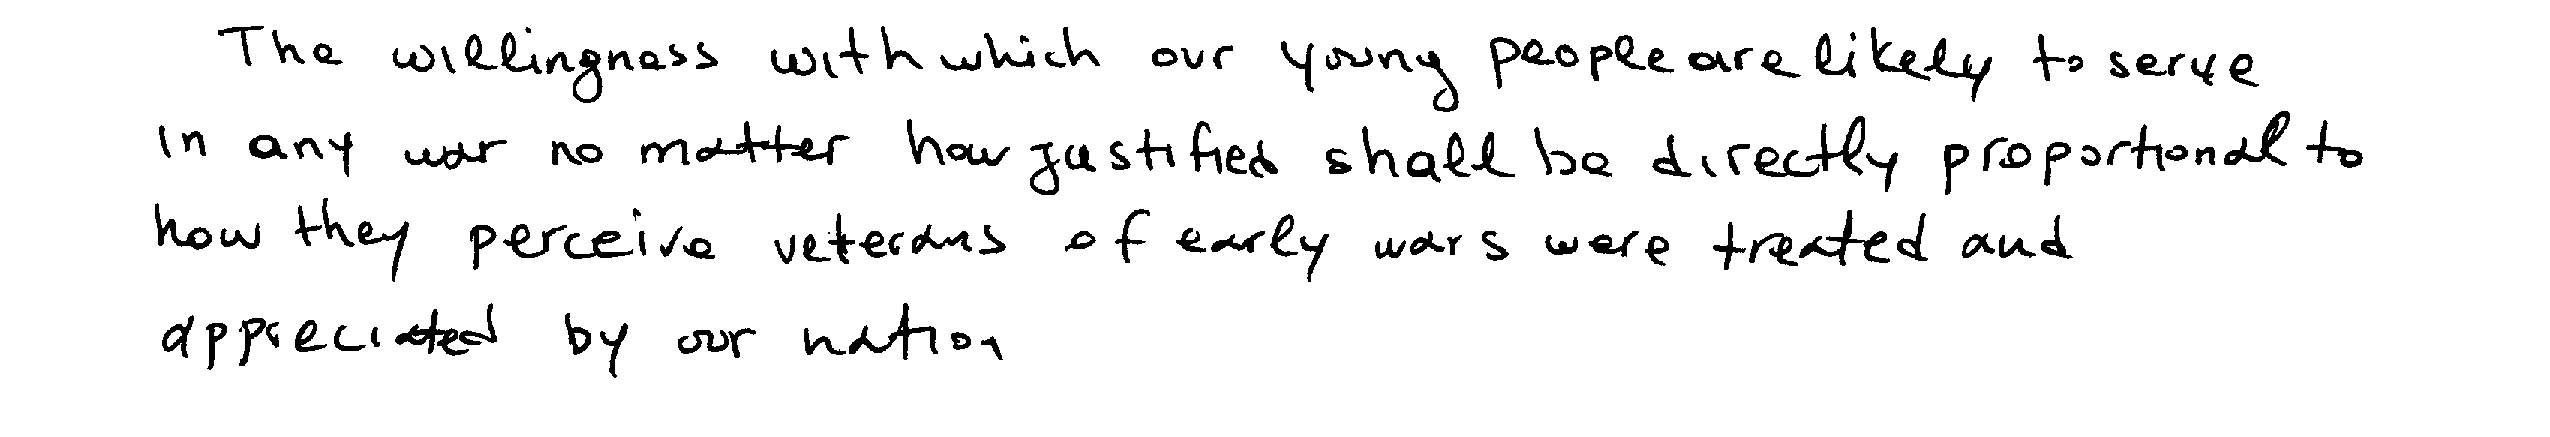 The willingness with which our young people are likely to serve
in any war no matter how justified shall be directly proportional to
how they perceive veterans of early wars were treated and
appreciated by our nation